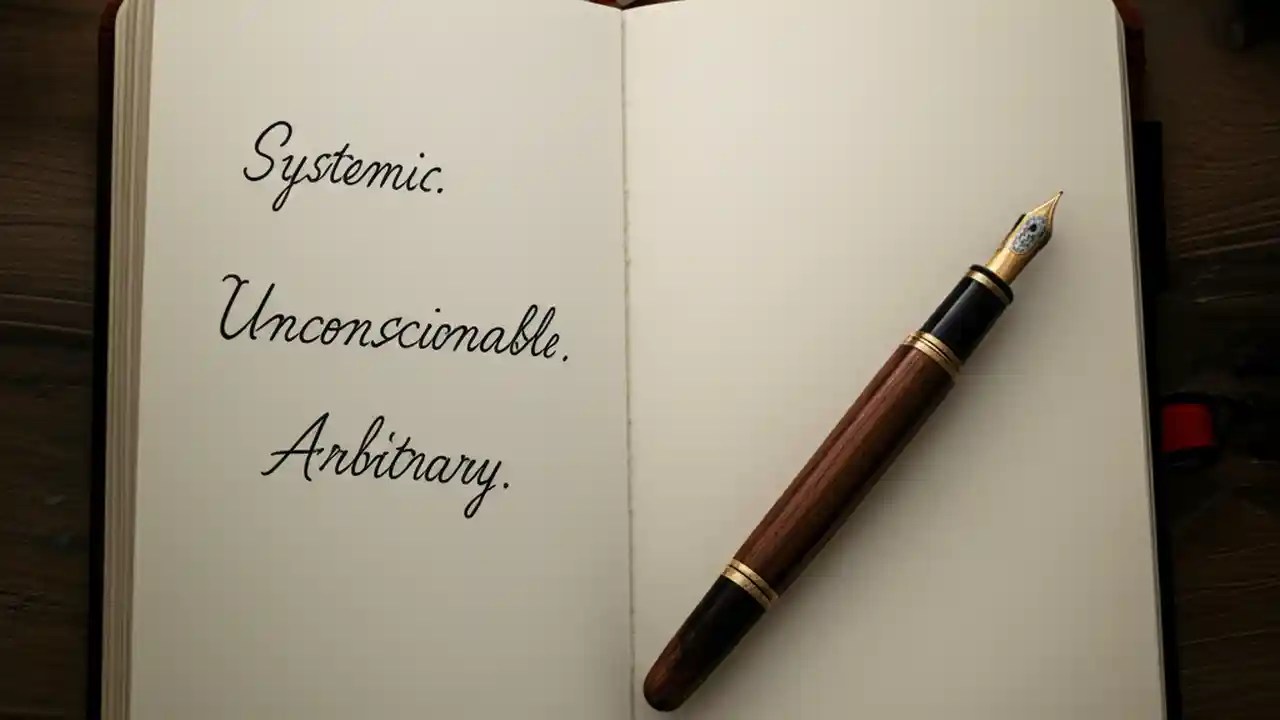 Systemic.
Unconscionable.
Arbitrary.